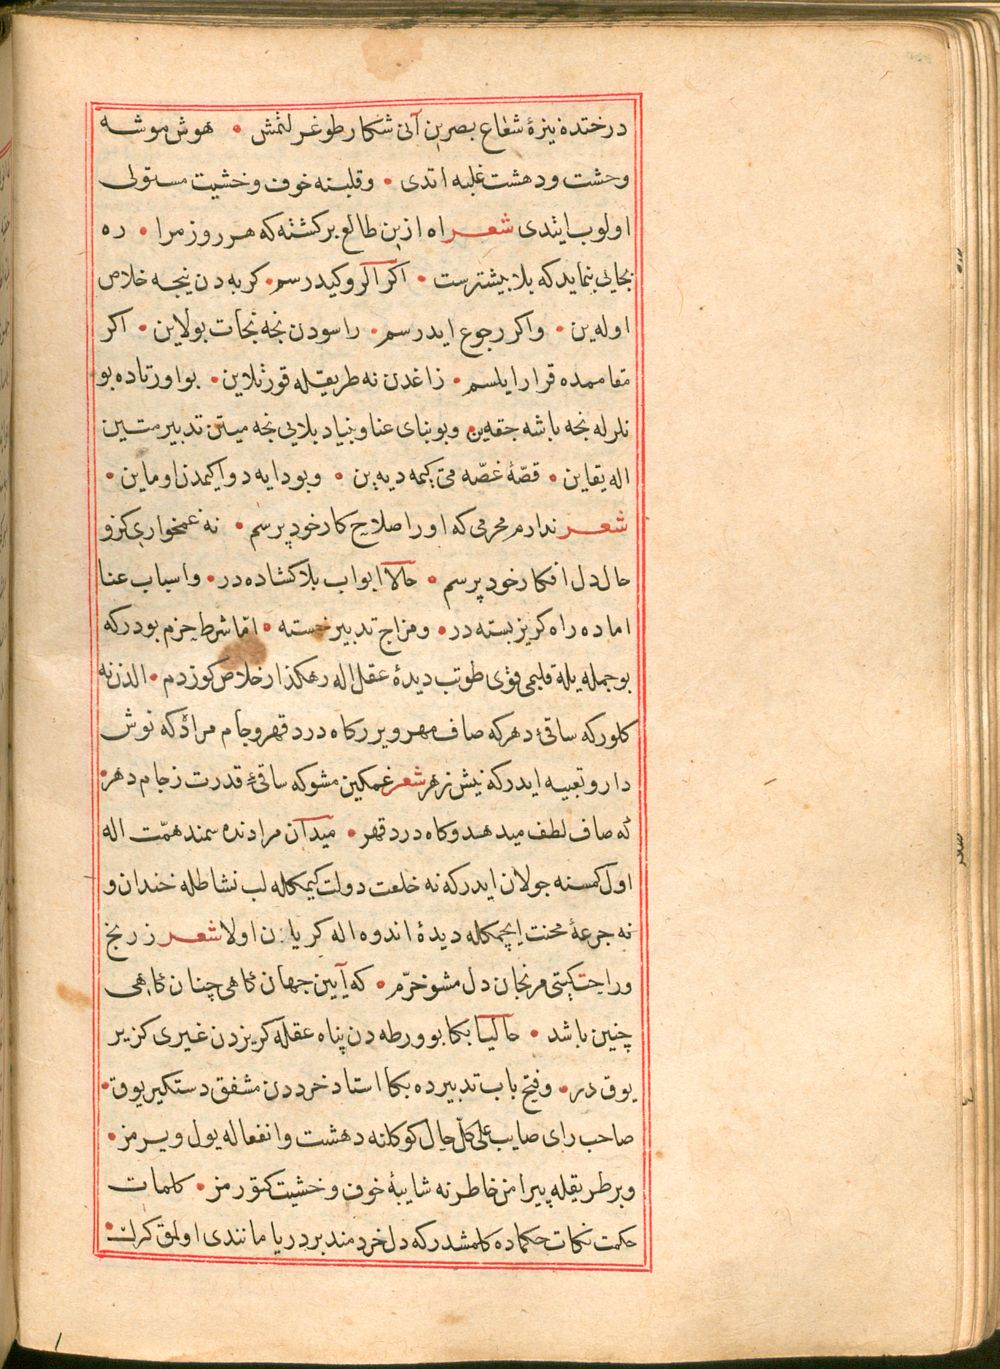 درختده نیزۀ شعاع بصرین آنی شکار طوغرلتمش • هوش موشه
وحشت و دهشت غلبه اتدی • و قلبنه خوف و خشیت مستولی
اولوب ایتدی شعر اه ازین طالع برکشته که هر روز مرا • ره
بجایی بنماید که بلا بیشترست • اکر اکرو کیدرسم • کربه دن نیجه خلاص
اوله ین • واکر رجوع ایدرسم • راسودن نجه نجات بولاین • اکر
مقاممده قرار ایلسم • زاغدن نه طریقله قورتلاین • بو اورتاده بو
نلرله نجه باشه جقه ین • و بو بنای عنا و بنیاد بلایی نجه میتن تدبیر متین
اله یقاین • قصّۀ غصّه می کیمه دیه ین • و بو دایه دوا کیمدن اوماین •
شعر ندارم محرمی که اورا صلاح کار خود پرسم • نه غمخواری کزو
حال دل افکار خود پرسم • حالا ابواب بلا کشاده در • و اسباب عنا
اماده راه کریز بسته در • و مزاج تدبیر خسته • امّا شرط حزم بودر که
بو جمله یله قلبمی قوی طوتب دیدۀ عقل اله رهکذار خلاص کوزدم • الذن نه
کلور که ساقیٔ دهر که صاف مهر ویرر کاه درد قهر و جام مرادکه نوش
دارو تعبیه ایدر که نیش زهر شعر غمکین مشو که ساقیٔ قدرت ز جام دهر •
که صاف لطف میدهد و کاه درد قهر • میدان مرادنده سمند همّت اله
اول کمسنه جولان ایدر که نه خلعت دولت کیمکله لب نشاطله خندان و
نه جرعۀ محنت ایچمکله دیدۀ اندوه اله کریان اولا شعر ز رنج
و راحت کیتی مرنجان دل مشو خرّم • که آیین جهان کاهی چنان کاهی
چنین باشد • حالیا بکا بو ورطه دن پناه عقله کریزدن غیری کزیر
یوق در • و فتح باب تدبیرده بکا استاد خرددن مشفق دستکیر یوق •
صاحب رای صایب علی کلّ حال کوکلنه دهشت و انفعاله یول ویرمز •
و بر طریقله پیرامن خاطرنه شایبۀ خوف و خشیت کتورمز • کلمات
حکمت نکات حکماده کلمشدر که دل خردمند بر دریا مانندی اولمق کرک •